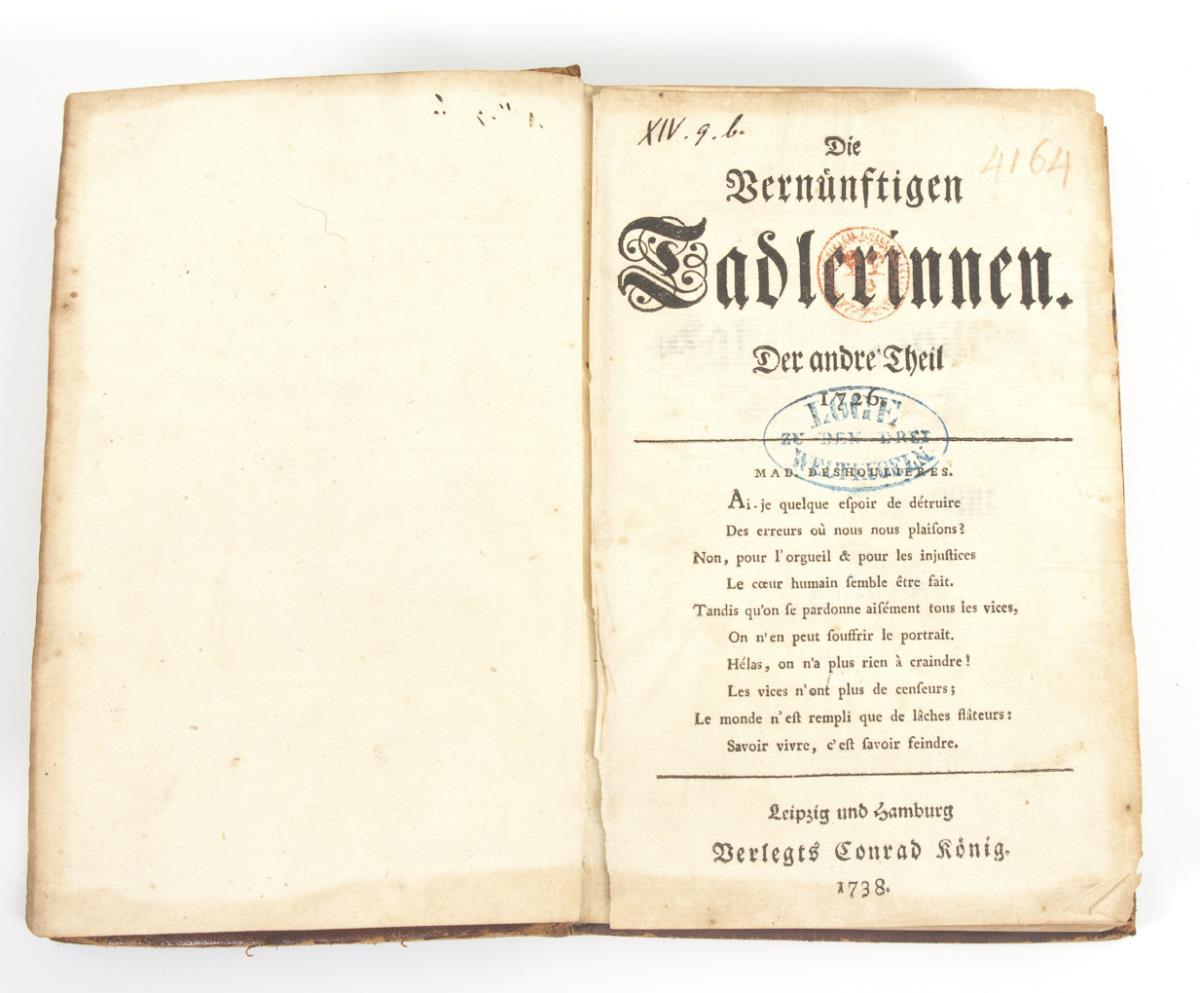 XIV. g. b.
4164
Die
Vernünftigen
Tadlerinnen.
Der andre Theil
1726.
LOGE
ZU DEN DREI
WELTKUGELN
MAD. DESHOULIERES.
Ai-je quelque eſpoir de détruire
Des erreurs où nous nous plaiſons?
Non, pour l'orgueil & pour les injuſtices
Le cœur humain ſemble être fait.
Tandis qu'on ſe pardonne aiſément tous les vices,
On n'en peut ſouffrir le portrait.
Hélas, on n'a plus rien à craindre!
Les vices n'ont plus de cenſeurs;
Le monde n'eſt rempli que de lâches flâteurs:
Savoir vivre, c'eſt ſavoir feindre.
Leipzig und Hamburg
Verlegts Conrad König.
1738.